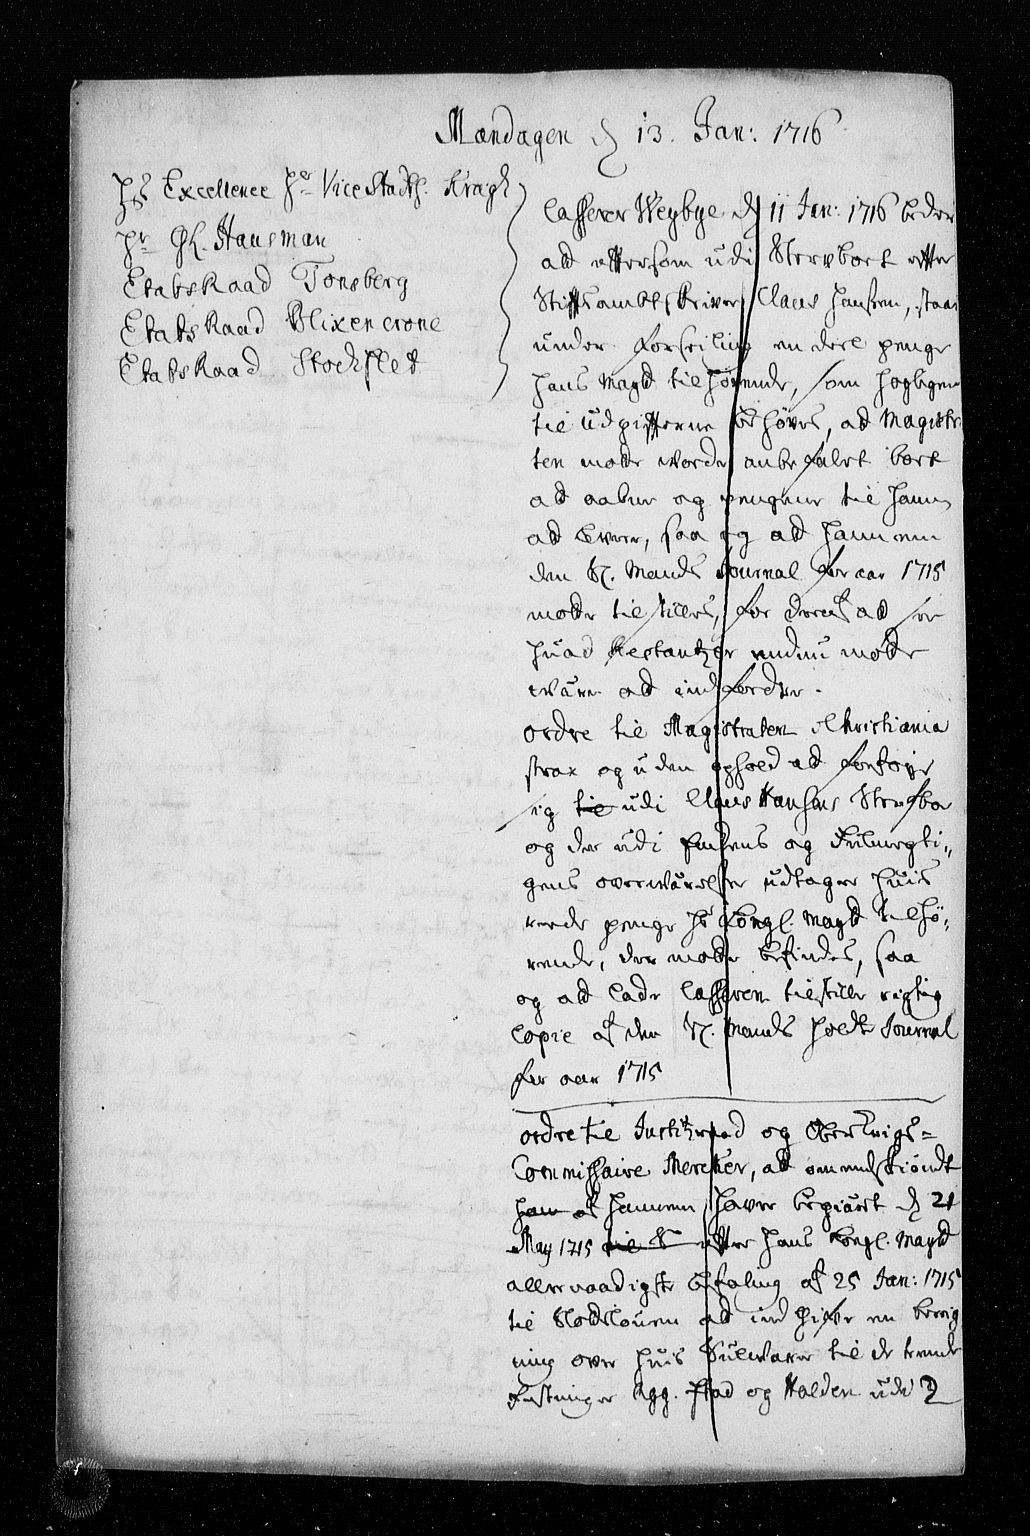 Mandagen d 13. Jan: 1716
Hs Excellence Hr Vice Stadth. Kragh
Hr GL. Hausman
Etatsraad Tonsberg
Etatsraad Blixencrone
Etatsraad Stochflet
Casserer Weybye d 11 Jan: 1716 beder
ad efftersom udi Sterboet effter
Stifftsambtskriver Claus Hanssen, staar
under forseiling en deel penge
hans Mayt tilhørende, som høyligen
til udgiffterne behøves, ad Magistra
ten motte worde anbefalet boet
ad aabne og pengene til ham
ad levere, saa og ad hannem
den Sl. Mands Journal for aar 1715
motte tilstilles, for deraf ad see
huad Restantzer endnu motte
være ad indfordre.
ordre til Magistraten i Christiania
strax og uden ophold ad forføye
sig udi Claus Hansens Sterfbo
og der udi Enchens og fuldmegti,,
gens overwærelse udtager huis
reede penge Hs Kongl. Mayt tilhø,,
rende, der motte befindes, saa
og ad lade Casseren tilstille rigtig
Copie af den Sl. Mands holdte Journal
for aar 1715
ordre til Justitzraad og Ober Krigs=
Commissaire Mercker, ad ommelskiøndt
af hannem haver begiært d 21
May 1715 effter hans Kongl. Mayts
allernaadigste befaling af 25 Jan: 1715
til Slodsloven ad indgifve en bereig
ning over huis til de trende
Festninger Agg. Stad og Halden udi 2